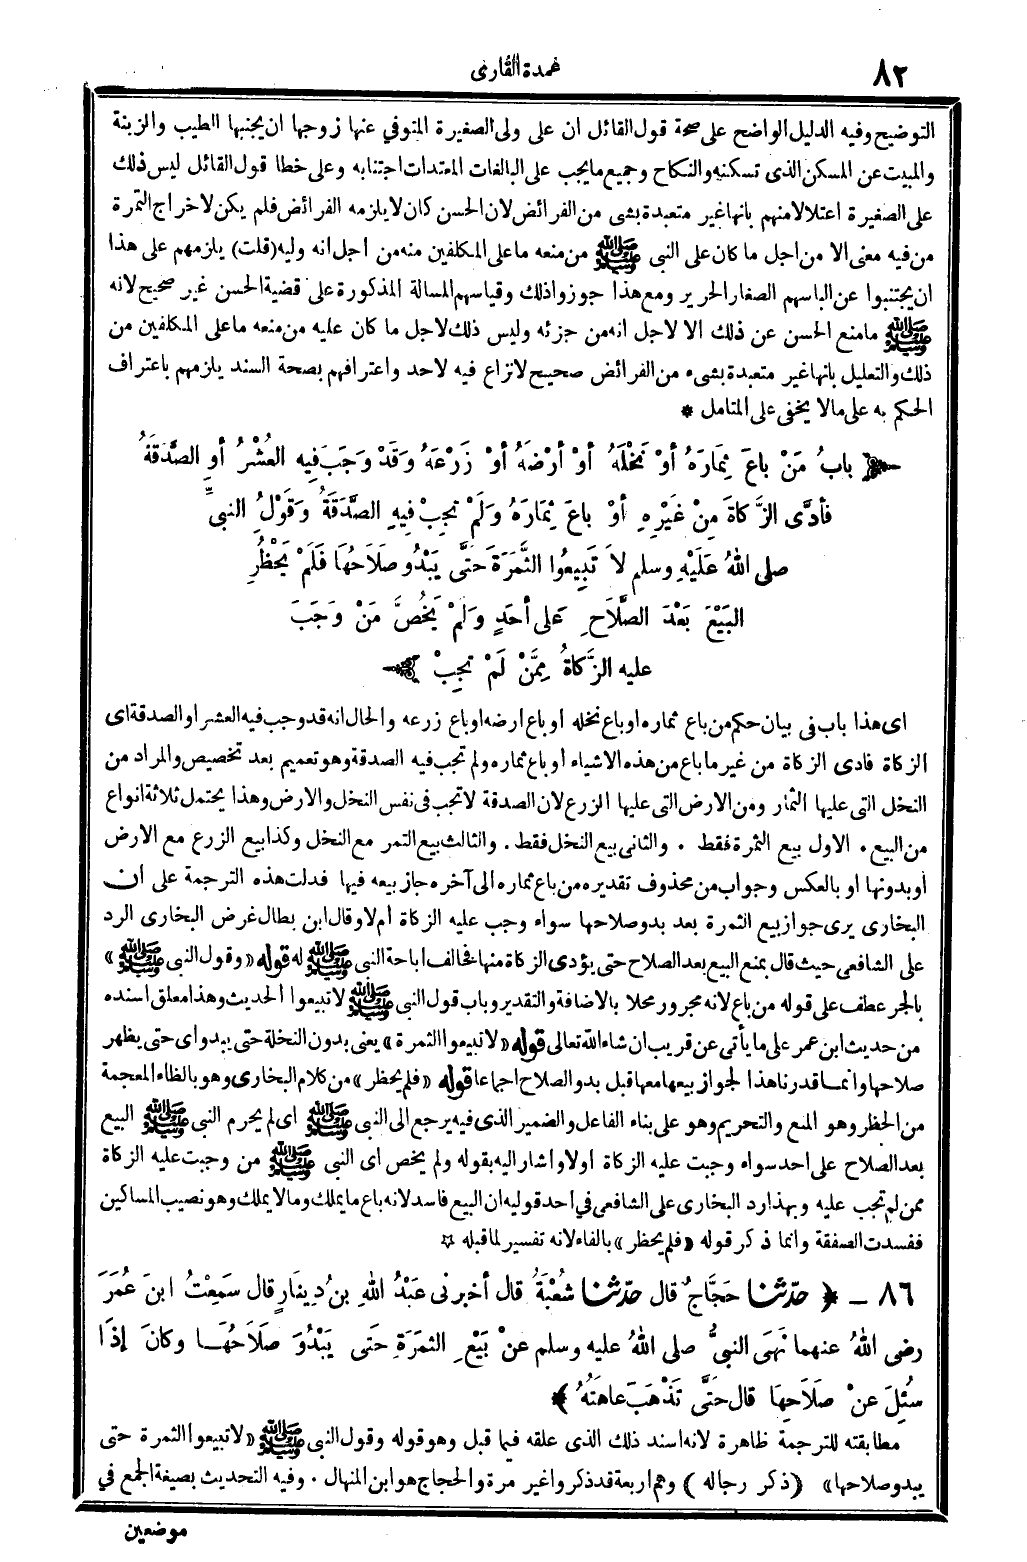 ٨٢
عمدة القارى
التوضيح وفيه الدليل الواضح على صحة قول القائل ان على ولى الصغيرة المتوفي عنها زوجها ان يجنبها الطيب والزينة
والمبيت عن المسكن الذى تسكنه والنكاح وجميع ما يجب على البالغات المعتدات اجتنابه وعلى خطا قول القائل ليس ذلك
على الصغيرة اعتلالا منهم بانها غير متعبدة بشى من الفرائض لان الحسن كان لا يلزمه الفرائض فلم يكن لاخراج التمرة
من فيه معنى الا من اجل ما كان على النبى ﷺ من منعه ما على المكلفين منه من اجل انه وليه (قلت) يلزمهم على هذا
ان يجتنبوا عن الباسهم الصغار الحرير ومع هذا جوزوا ذلك وقياسهم المسالة المذكورة على قضية الحسن غير صحيح لانه
ﷺ ما منع الحسن عن ذلك الا لاجل انه من جزئه وليس ذلك لاجل ما كان عليه من منعه ما على المكلفين من
ذلك والتعليل بانها غير متعبدة بشىء من الفرائض صحيح لانزاع فيه لاحد واعترافهم بصحة السند يلزمهم باعتراف
الحكم به على مالا يخفى على المتامل *
بابُ مَنْ باعَ ثِمَارَهُ أوْ نَخْلَهُ أوْ أرْضَهُ أوْ زَرْعَهُ وَقَدْ وَجَبَ فِيه العُشْرُ أوِ الصَّدَقَةُ
فأدَّى الزَّكاةَ مِنْ غَيْرِهِ أوْ باعَ ثِمَارَهُ وَلَمْ تجِبْ فِيهِ الصَّدَقَةُ وَقَوْلُ النبىِّ
صلى اللهُ عَلَيْهِ وسلم لاَ تَبِيعُوا الثَّمَرَةَ حَتَّى يَبْدُو صَلَاحُهَا فَلَمْ يَحْظُرِ
البَيْعَ بَعْدَ الصَّلاَحِ عَلى أحَدٍ وَلَمْ يَخُصَّ مَنْ وَجَبَ
عليه الزَّكاةُ مِمَّنْ لَمْ تجِبْ
اى هذا باب فى بيان حكم من باع ثماره او باع نخله او باع ارضه او باع زرعه والحال انه قد وجب فيه العشر او الصدقة اى
الزكاة فادى الزكاة من غير ما باع من هذه الاشياء او باع ثماره ولم تجب فيه الصدقة وهو تعميم بعد تخصيص والمراد من
النخل التى عليها الثمار ومن الارض التى عليها الزرع لان الصدقة لا تجب فى نفس النخل والارض وهذا يحتمل ثلاثة انواع
من البيع . الاول بيع الثمرة فقط . والثانى بيع النخل فقط . والثالث بيع التمر مع النخل وكذا بيع الزرع مع الارض
او بدونها او بالعكس وجواب من محذوف تقديره من باع ثماره الى آخره جاز بيعه فيها فدلت هذه الترجمة على أن
البخارى يرى جواز بيع الثمرة بعد بدو صلاحها سواء وجب عليه الزكاة أم لا وقال ابن بطال غرض البخارى الرد
على الشافعى حيث قال بمنع البيع بعد الصلاح حتى يؤدى الزكاة منها فخالف اباحة النبى ﷺ له قوله «وقول النبى ﷺ»
بالجر عطف على قوله من باع لانه مجرور محلا بالاضافة والتقدير وباب قول النبى ﷺ لا تبيعوا الحديث وهذا معلق اسنده
من حديث ابن عمر على ما يأتى عن قريب ان شاء الله تعالى قوله «لا تبيعوا الثمرة» يعنى بدون النخلة حتى يبدو اى حتى يظهر
صلاحها وانما قدرنا هذا لجواز بيعها معها قبل بدو الصلاح اجماعا قوله «فلم يحظر» من كلام البخارى وهو بالظاء المعجمة
من الحظر وهو المنع والتحريم وهو على بناء الفاعل والضمير الذى فيه يرجع الى النبى ﷺ اى لم يحرم النبى ﷺ البيع
بعد الصلاح على احد سواء وجبت عليه الزكاة اولا واشار اليه بقوله ولم يخص اى النبى ﷺ من وجبت عليه الزكاة
ممن لم تجب عليه وبهذا رد البخارى على الشافعى في احد قوليه ان البيع فاسد لانه باع ما يملك وما لا يملك وهو نصيب المساكين
ففسدت الصفقة وانما ذكر قوله «فلم يحظر» بالفاء لانه تفسير لما قبله *
٨٦ – ﴿ حدّثنا حَجَّاجٌ قال حدّثنا شُعْبَةُ قال أخبرنى عَبْدُ اللهِ بنُ دِينَارٍ قال سَمِعْتُ ابنَ عُمَرَ
رضى اللهُ عنهما نَهَى النبىُّ صلى اللهُ عليه وسلم عنْ بَيْعِ الثمَرَةِ حَتَّى يَبْدُوَ صَلَاحُهَا وكانَ إذَا
سُئِلَ عنْ صَلَاحِهَا قال حَتَّى تَذْهَبَ عاهَتُهُ ﴾
مطابقته للترجمة ظاهرة لانه اسند ذلك الذى علقه فيما قبل وهو قوله وقول النبى ﷺ «لا تبيعوا الثمرة حتى
يبدو صلاحها» (ذكر رجاله) وهم اربعة قد ذكروا غير مرة والحجاج هو ابن المنهال . وفيه التحديث بصيغة الجمع في
موضعين